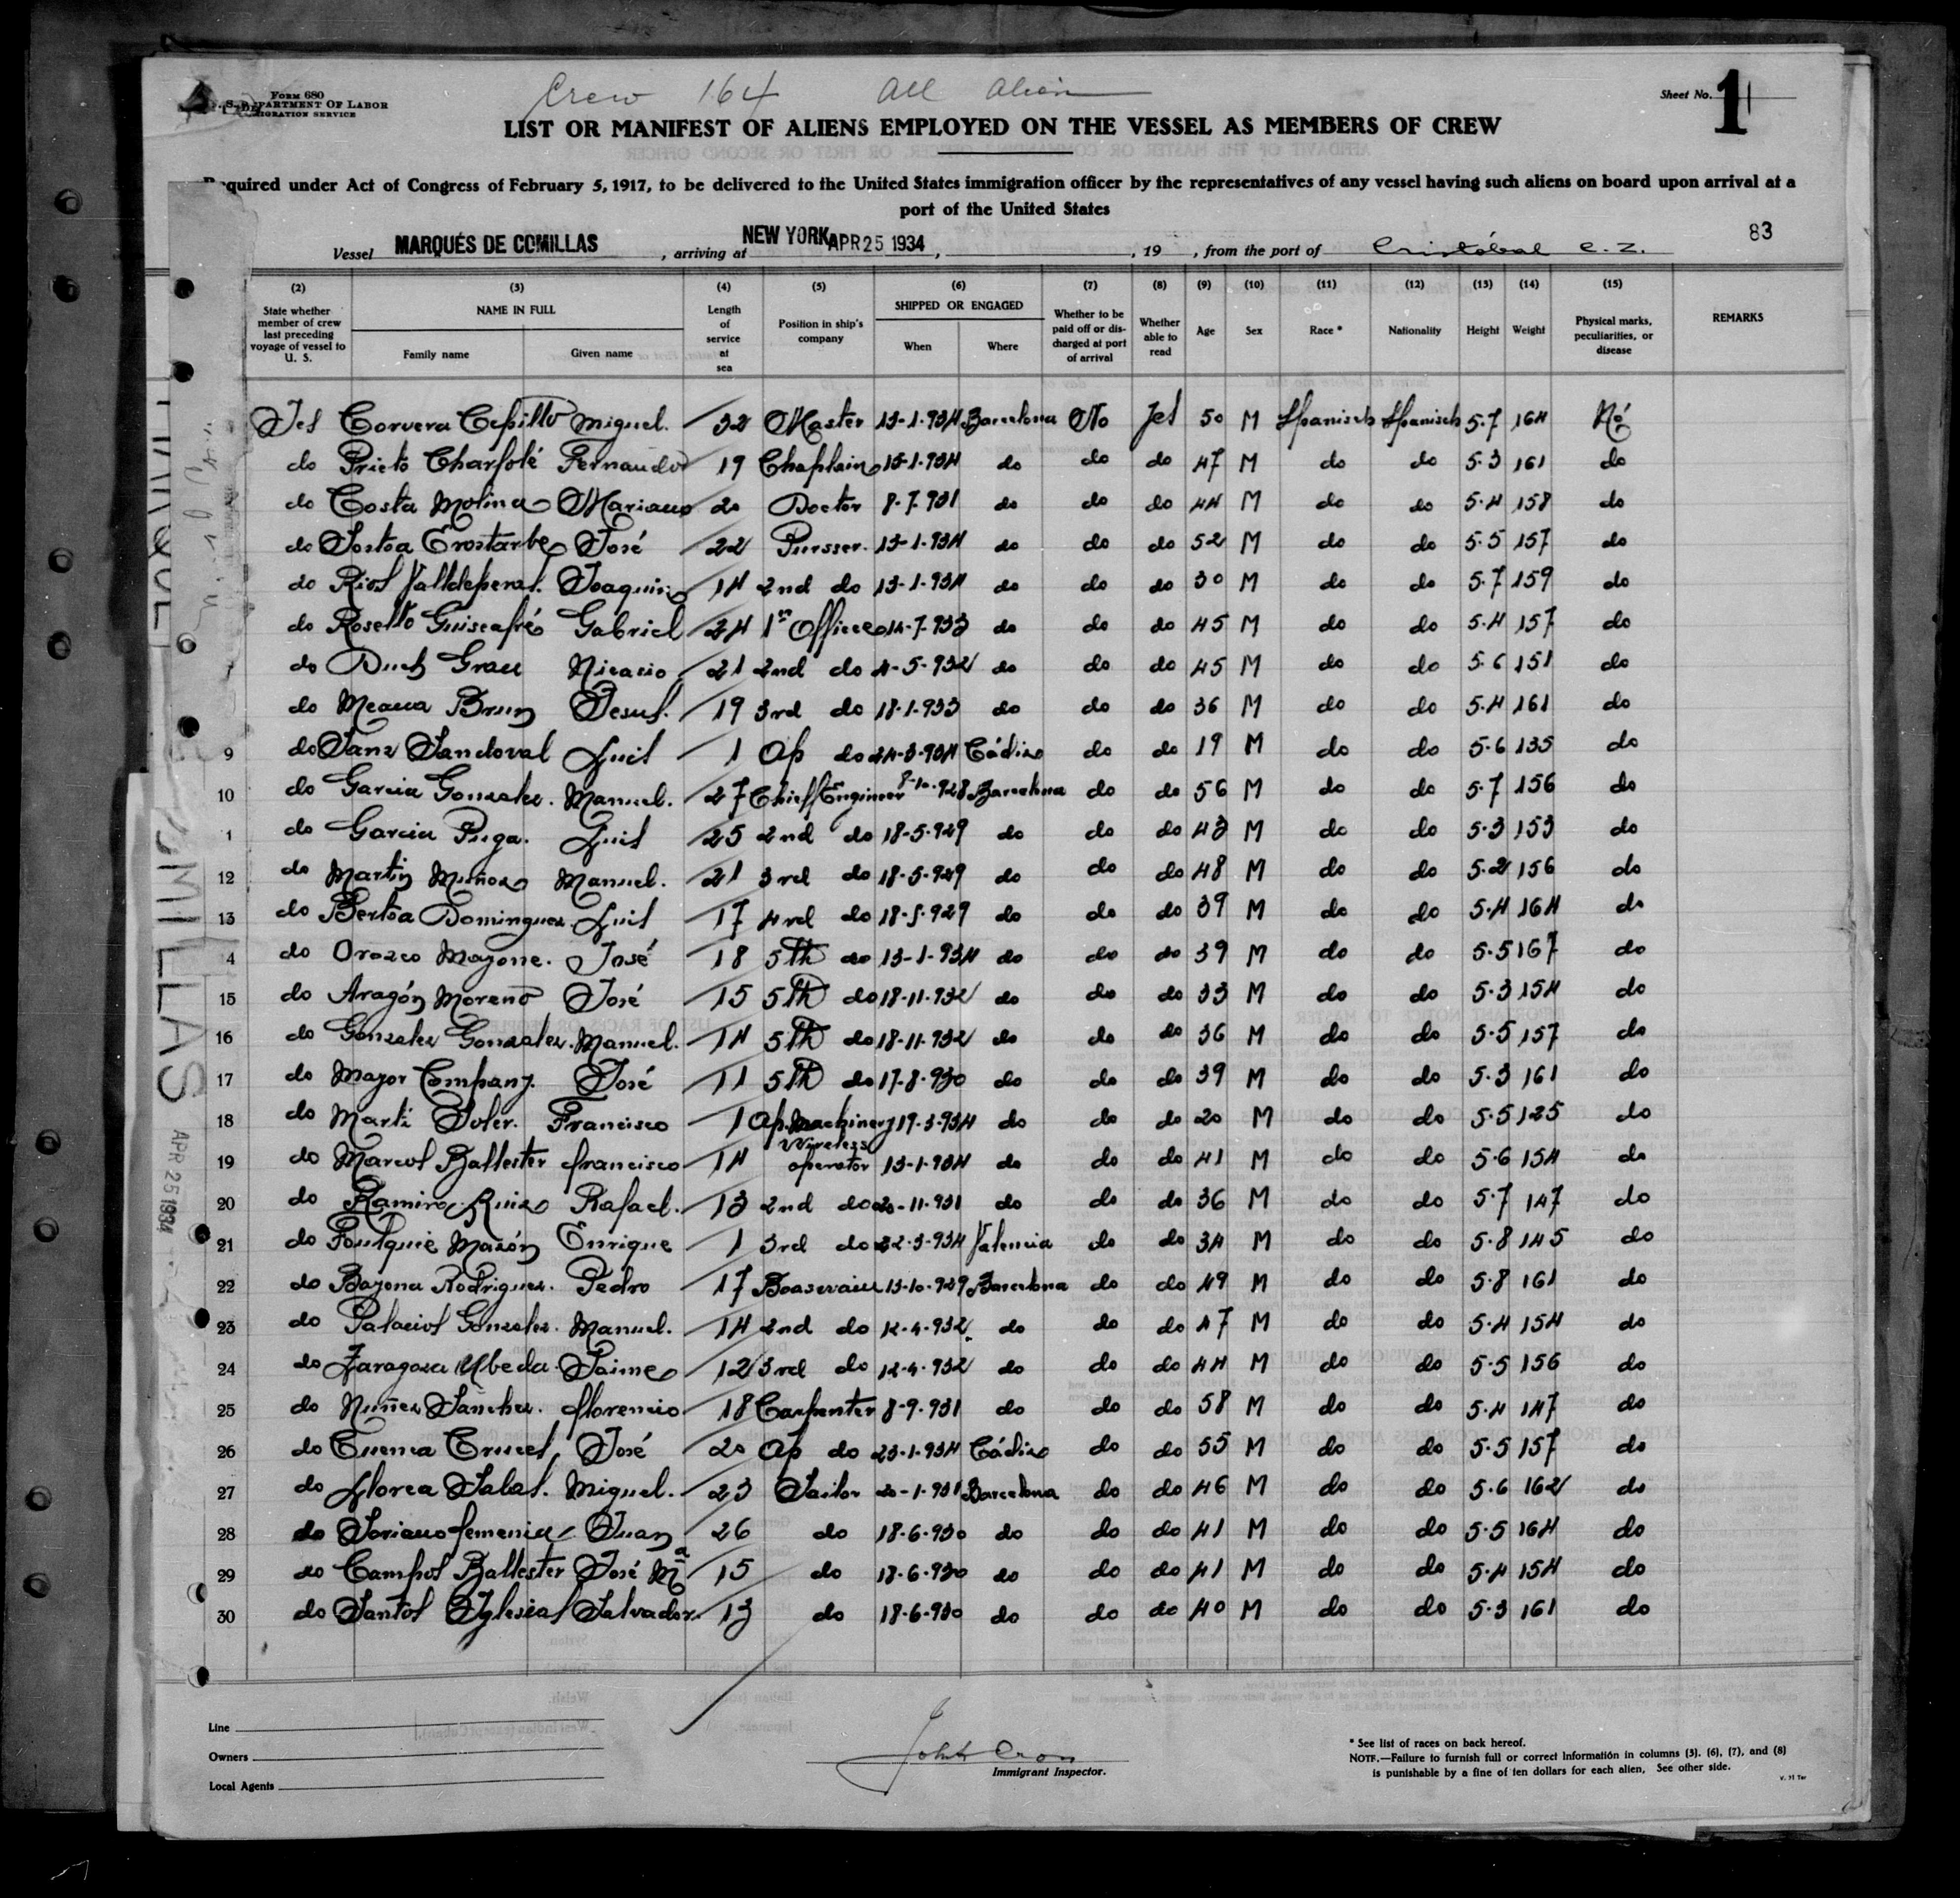 Crew 164 All Alien
Form 680
U. S. DEPARTMENT OF LABOR
IMMIGRATION SERVICE
Sheet No. 1
LIST OR MANIFEST OF ALIENS EMPLOYED ON THE VESSEL AS MEMBERS OF CREW
Required under Act of Congress of February 5, 1917, to be delivered to the United States immigration officer by the representatives of any vessel having such aliens on board upon arrival at a
port of the United States
83
Vessel MARQUÉS DE COMILLAS, arriving at NEW YORK APR 25 1934, , 19 , from the port of Cristóbal C. Z.
(2) (3) (4) (5) (6) (7) (8) (9) (10) (11) (12) (13) (14) (15)
State whether member of crew last preceding voyage of vessel to U. S. NAME IN FULL Family name Given name Length of service at sea Position in ship's company SHIPPED OR ENGAGED When Where Whether to be paid off or discharged at port of arrival Whether able to read Age Sex Race * Nationality Height Weight Physical marks, peculiarities, or disease REMARKS
Jes Corvera Cepillo Miguel. 32 Master 13-1-934 Barcelona No Jes 50 M Spanisch Spanisch 5.7 164 No
do Prieto Charfolé Fernando 19 Chaplain 13-1-934 do do do 47 M do do 5.3 161 do
do Costa Molina Mariano 20 Doctor 8-7-931 do do do 44 M do do 5.4 158 do
do Sostoa Erostarbe José 22 Pursser. 13-1-934 do do do 52 M do do 5.5 157 do
do Rios Valldeperas. Joaquin 14 2nd do 13-1-934 do do do 30 M do do 5.7 159 do
do Rosello Guiscafré Gabriel 24 1st Officer 14-7-933 do do do 45 M do do 5.4 157 do
do Duch Grau Nicasio 21 2nd do 4-5-932 do do do 45 M do do 5.6 151 do
do Meana Brun Jesus. 19 3rd do 18-1-933 do do do 36 M do do 5.4 161 do
9 do Sanz Sandoval Luis 1 Ap do 24-3-934 Cádiz do do 19 M do do 5.6 135 do
10 do Garcia Gonzalez. Manuel. 27 Chief Engineer 8-10-928 Barcelona do do 56 M do do 5.7 156 do
1 do Garcia Puga. Luis 25 2nd do 18-5-929 do do do 43 M do do 5.3 153 do
12 do Martin Muñoz Manuel. 21 3rd do 18-5-929 do do do 48 M do do 5.2 156 do
13 do Bertoa Dominguez. Luis 17 4rd do 18-5-929 do do do 39 M do do 5.4 164 do
4 do Orozco Mayone. José 18 5th do 13-1-934 do do do 39 M do do 5.5 167 do
15 do Aragón Moreno José 15 5th do 18-11-932 do do do 33 M do do 5.3 154 do
16 do Gonzalez Gonzalez. Manuel. 14 5th do 18-11-932 do do do 36 M do do 5.5 157 do
17 do Mayor Company. José 11 5th do 17-8-930 do do do 39 M do do 5.3 161 do
18 do Marti Soler. Francisco 1 Ap. Machinery 19-3-934 do do do 20 M do do 5.5 125 do
19 do Marcos Ballester francisco 14 Wireless operator 13-1-934 do do do 41 M do do 5.6 154 do
20 do Ramiro Ruiz Rafael. 13 2nd do 20-11-931 do do do 36 M do do 5.7 147 do
21 do Foulquie Mazón Enrique 1 3rd do 22-3-934 Valencia do do 34 M do do 5.8 145 do
22 do Bayona Rodriguez. Pedro 17 Boaservain 13-10-929 Barcelona do do 49 M do do 5.8 161 do
23 do Palacios Gonzalez. Manuel. 14 2nd do 12-4-932 do do do 47 M do do 5.4 154 do
24 do Zaragoza Ubeda. Jaime 12 3rd do 12-4-932 do do do 44 M do do 5.5 156 do
25 do Nuñez Sanchez. florencio 18 Carpenter 8-9-931 do do do 58 M do do 5.4 147 do
26 do Cuenca Cruces, José 20 Ap do 23-1-934 Cádiz do do 55 M do do 5.5 157 do
27 do Llorca Salas. Miguel. 23 Sailor 20-1-931 Barcelona do do 46 M do do 5.6 162 do
28 do Soriano femenia Juan 26 do 18-6-930 do do do 41 M do do 5.5 164 do
29 do Campos Ballester José Mª 15 do 18-6-930 do do do 41 M do do 5.4 154 do
30 do Santos Iglesias Salvador. 13 do 18-6-930 do do do 40 M do do 5.3 161 do
Line
Owners
Local Agents
John Cron
Immigrant Inspector.
* See list of races on back hereof.
NOTE.—Failure to furnish full or correct information in columns (3), (6), (7), and (8)
is punishable by a fine of ten dollars for each alien. See other side.
APR 25 1934